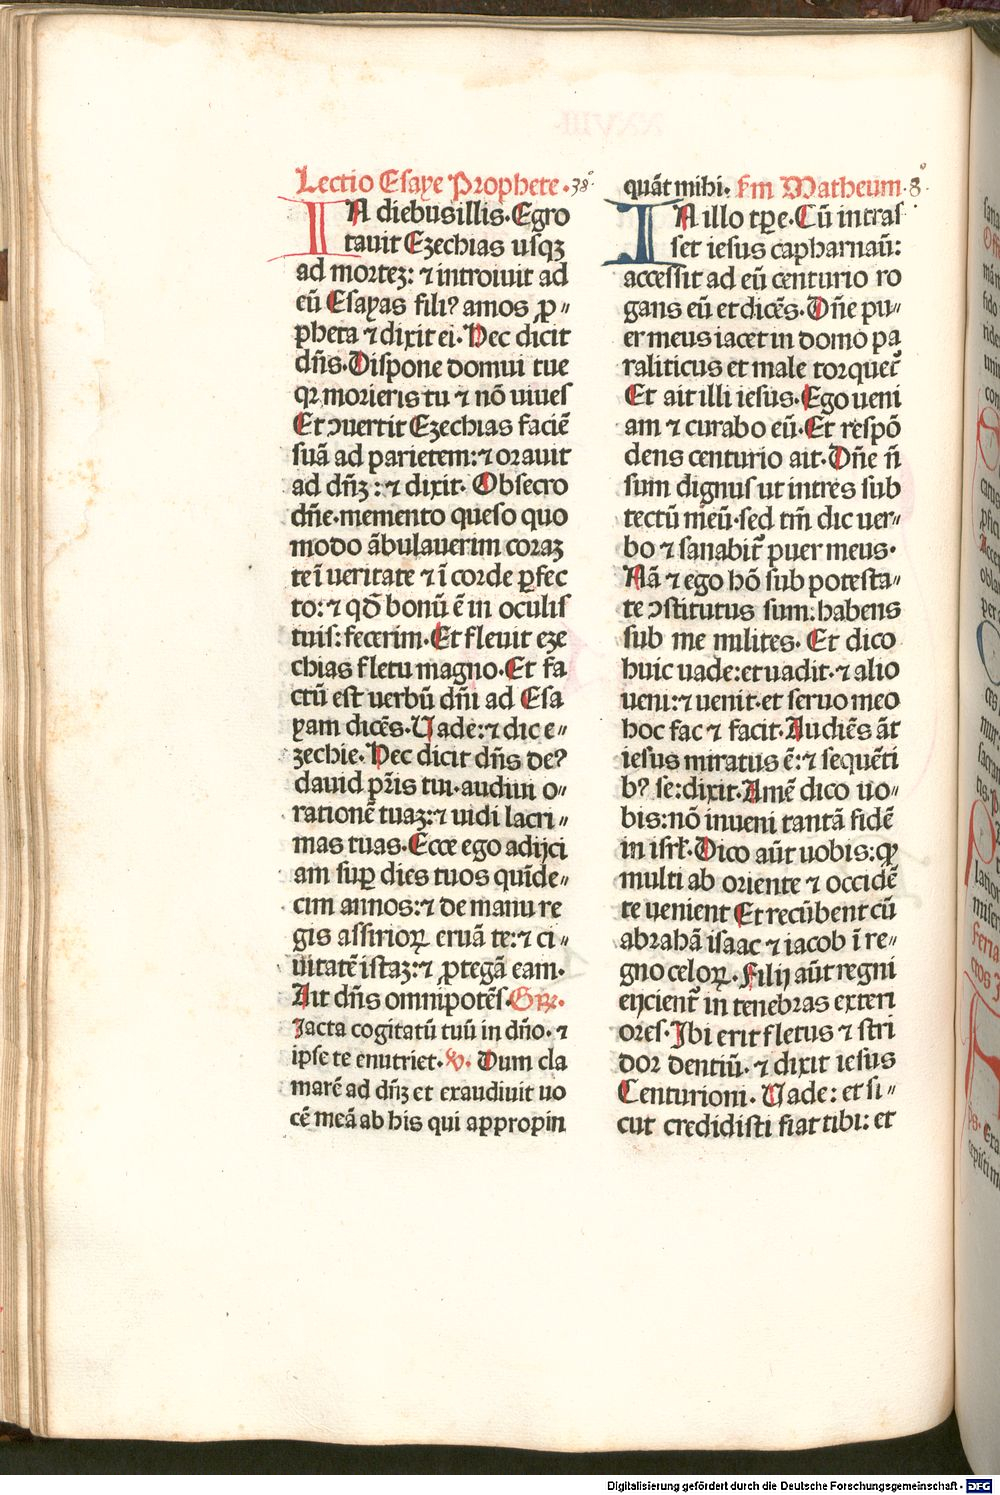 Lectio Esaye Prophete · 38°.
IN diebus illis. Egro
tauit Ezechias usqꝫ
ad morteꝫ: ⁊ introiuit ad
eū Esayas filiꝰ amos ꝓ-
pheta ⁊ dixit ei. Hec dicit
dñs. Dispone domui tue
qꝛ morieris tu ⁊ nō uiues
Et ↄuertit Ezechias faciē
suā ad parietem: ⁊ orauit
ad dñꝫ: ⁊ dixit. Obsecro
dñe. memento queso quo
modo ābulauerim coraꝫ
te ī ueritate ⁊ ī corde ꝑfec
to: ⁊ qđ bonū ē in oculis
tuis: fecerim. Et fleuit eze
chias fletu magno. Et fa
ctū est uerbū dñi ad Esa
yam dicēs. Uade: ⁊ dic e-
zechie. Hec dicit dñs deꝰ
dauid pr̄is tui. audiui o-
rationē tuaꝫ: ⁊ uidi lacri-
mas tuas. Ecce ego adijci
am suꝑ dies tuos quīde-
cim annos: ⁊ de manu re
gis assirioꝝ eruā te: ⁊ ci-
uitatē istaꝫ: ⁊ ꝓtegā eam.
Ait dñs omnipotēs. Gr̄e.
Jacta cogitatū tuū in dño. ⁊
ipse te enutriet. ℣. Dum cla
marē ad dñꝫ et exaudiuit uo
cē meā ab his qui appropin
quāt mihi. Scďm Matheum. 8°.
IN illo tꝑe. Cū intras
set iesus capharnaū:
accessit ad eū centurio ro
gans eū et dicēs. Dñe pu-
er meus iacet in domo pa
raliticus et male torquet᷑
Et ait illi iesus. Ego ueni
am ⁊ curabo eū. Et respō
dens centurio ait. Dñe ñ
sum dignus ut intres sub
tectū meū. sed tm̄ dic uer-
bo ⁊ sanabit᷑ puer meus.
Nā ⁊ ego hō sub potesta-
te ↄstitutus sum: habens
sub me milites. Et dico
huic uade: et uadit. ⁊ alio
ueni: ⁊ uenit. et seruo meo
hoc fac ⁊ facit. Audiēs āt
iesus miratus ē: ⁊ sequēti
bꝰ se: dixit. Amē dico uo-
bis: nō inueni tantā fidē
in isrl̄. Dico aūt uobis: ꝙ
multi ab oriente ⁊ occidē
te uenient Et recūbent cū
abrahā isaac ⁊ iacob ī re-
gno celoꝝ. Filij aūt regni
eijcient᷑ in tenebras exteri
ores. Ibi erit fletus ⁊ stri
dor dentiū. ⁊ dixit iesus
Centurioni. Uade: et si-
cut credidisti fiat tibi: et
Digitalisierung gefördert durch die Deutsche Forschungsgemeinschaft - DFG